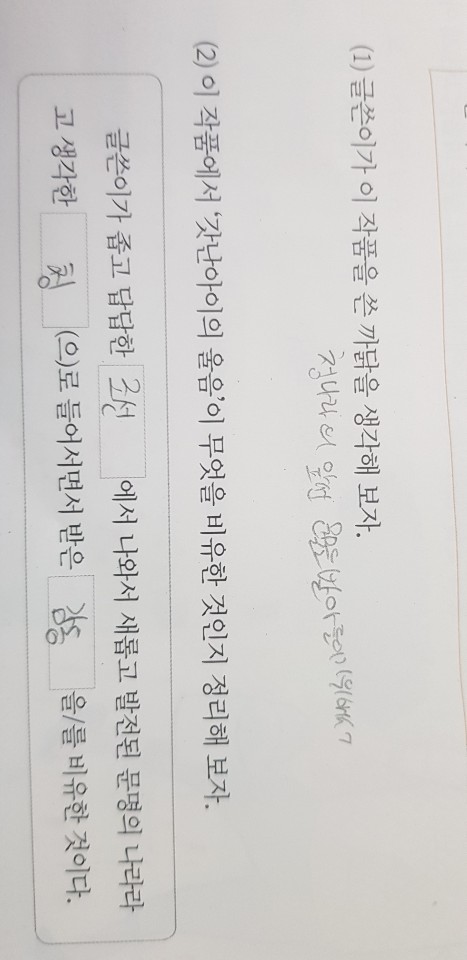 (1) 글쓴이가 이 작품을 쓴 까닭을 생각해 보자.
청나라의 앞선 문물을 받아들이기 위해서
(2) 이 작품에서 ‘갓난아이의 울음’이 무엇을 비유한 것인지 정리해 보자.
글쓴이가 좁고 답답한 조선 에서 나와서 새롭고 발전된 문명의 나라라
고 생각한 청 (으)로 들어서면서 받은 감동 을/를 비유한 것이다.